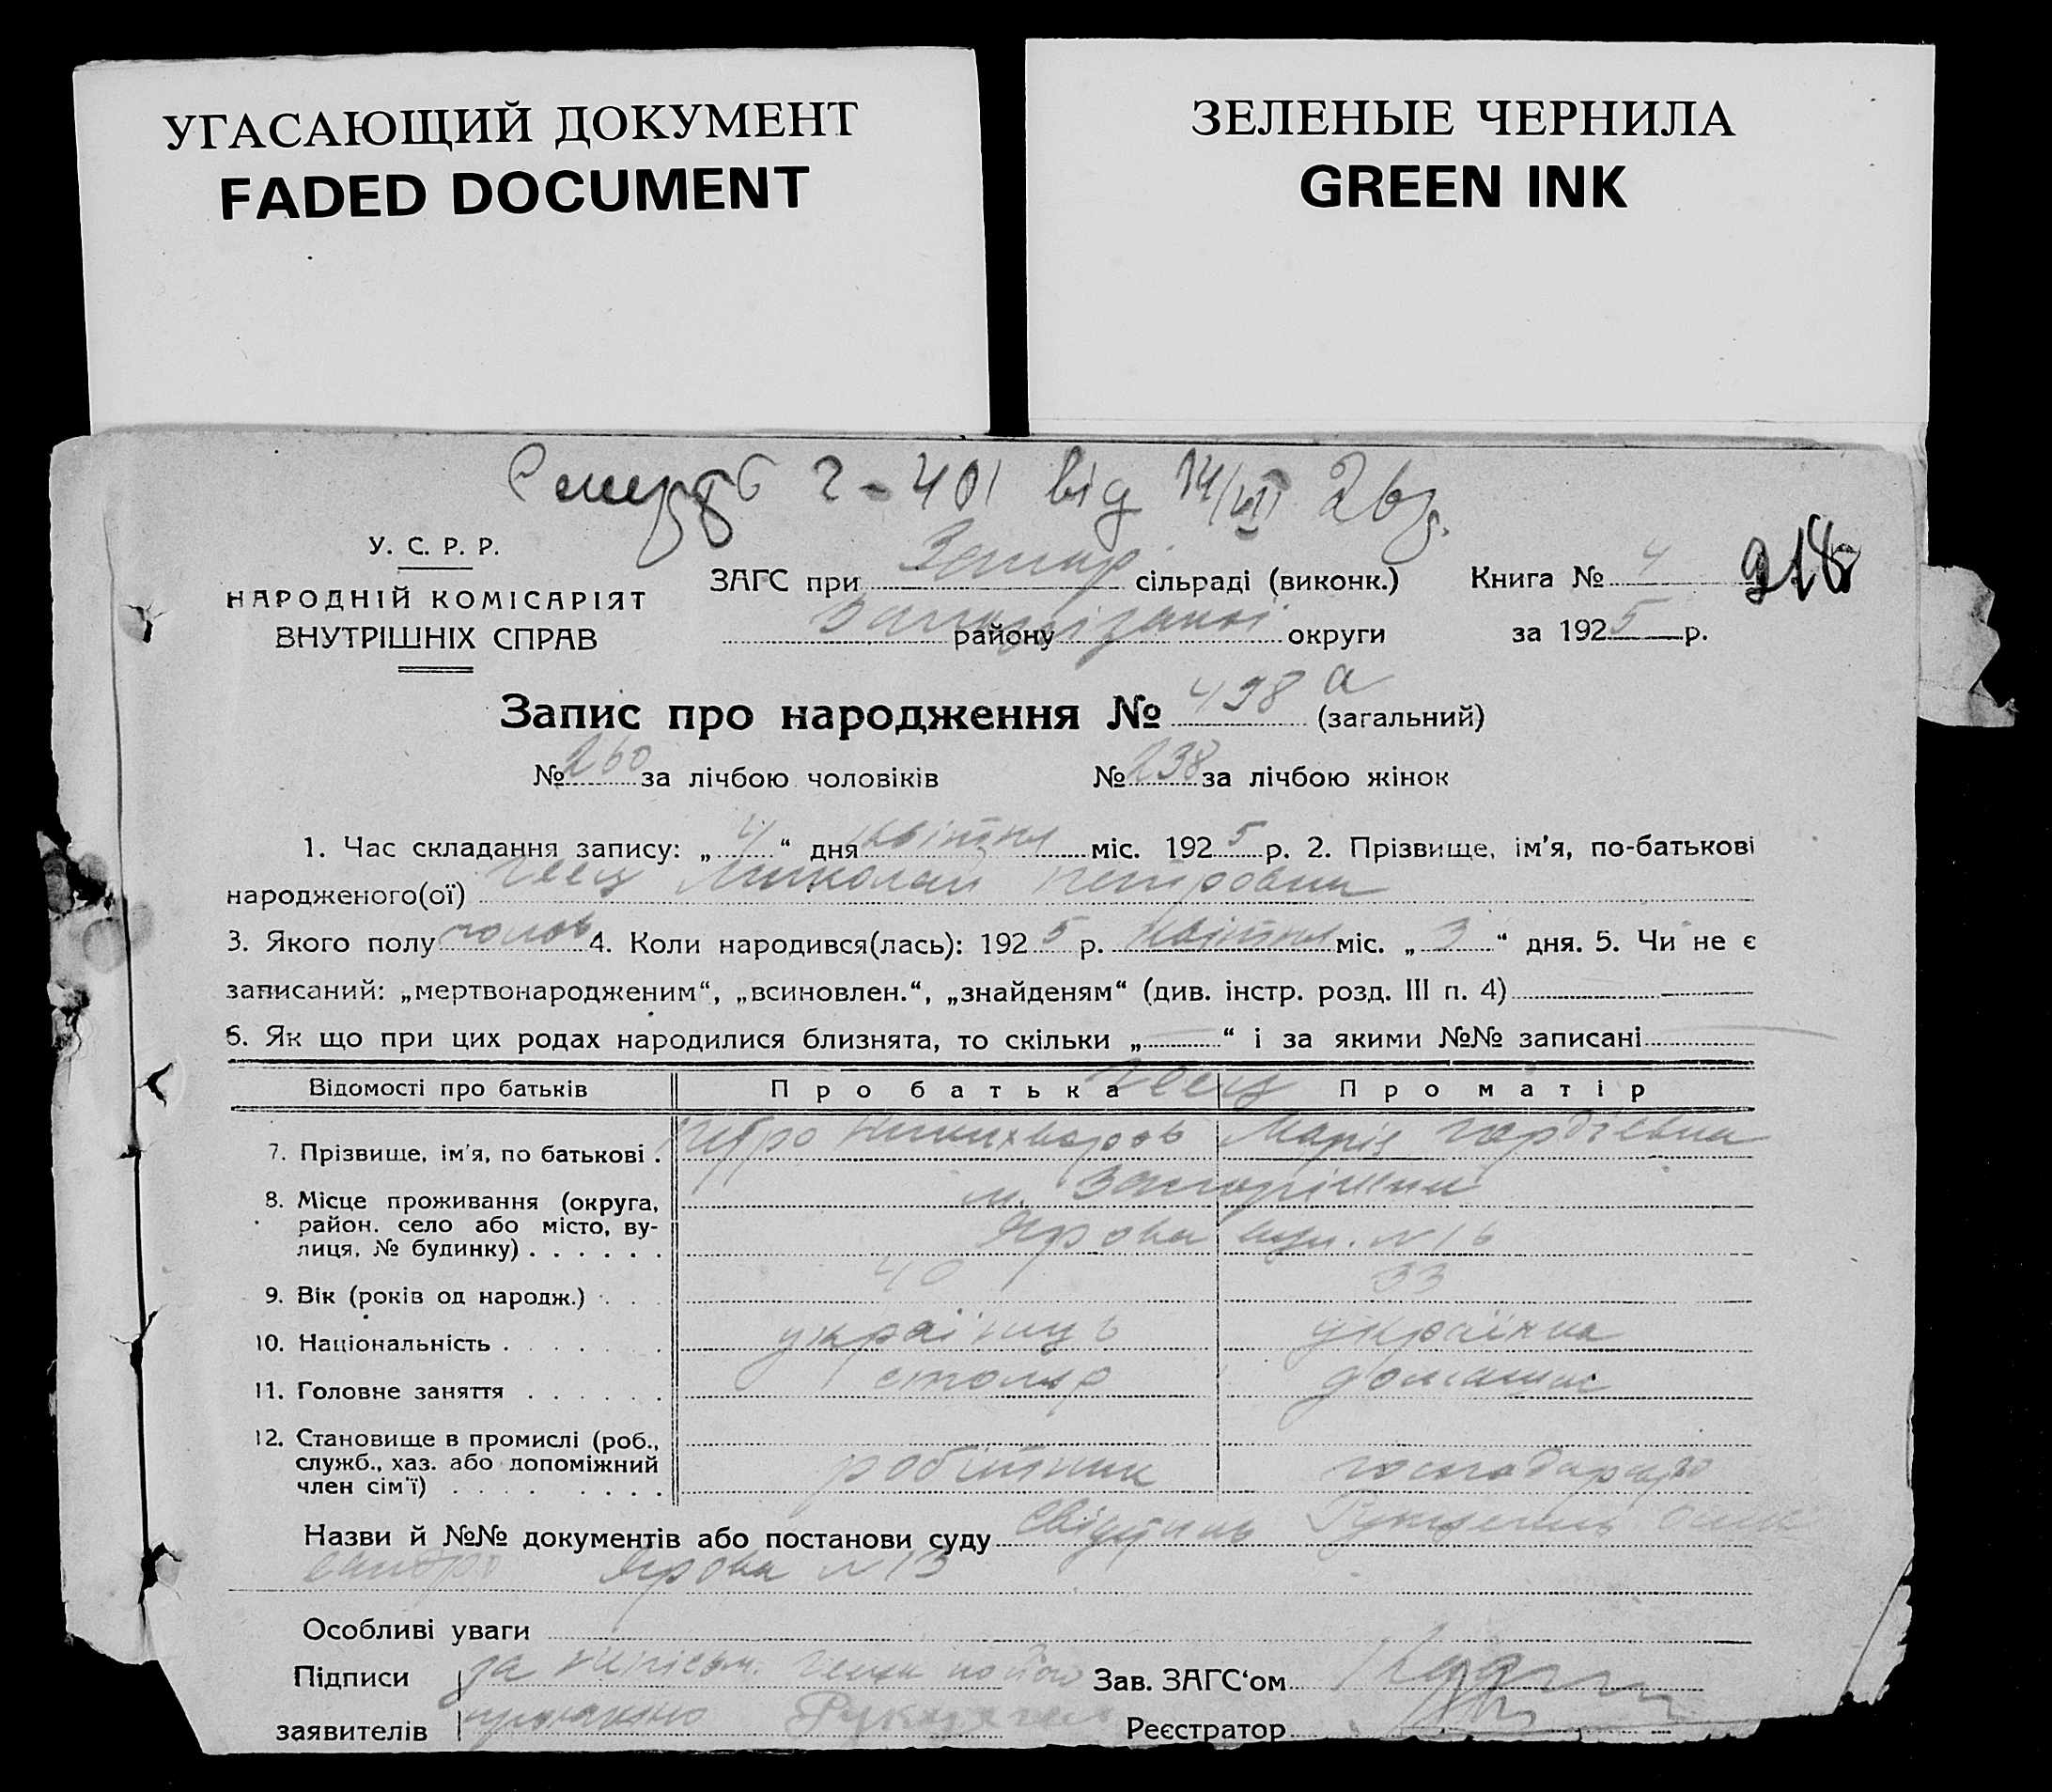 УГАСАЮЩИЙ ДОКУМЕНТ
FADED DOCUMENT
ЗЕЛЕНЫЕ ЧЕРНИЛА
GREEN INK
2-401 від 14/VII 26р.
У. С. Р. Р.
НАРОДНІЙ КОМІСАРІЯТ
ВНУТРІШНІХ СПРАВ
ЗАГС при сільраді (виконк.)
району округи
Книга № 4
за 1925 р.
Запис про народження № 498 а (загальний)
№ 260 за лічбою чоловіків № 238 за лічбою жінок
1. Час складання запису: „ 4 “ дня квітня міс. 1925 р. 2. Прізвище, ім'я, по-батькові
народженого(ої) Геец Миколай Петрович
3. Якого полу чолов 4. Коли народився(лась): 1925 р. квітня міс. „ 3 “ дня. 5. Чи не є
записаний: „мертвонародженим“, „всиновлен.“, „знайденям“ (див. інстр. розд. III п. 4)
6. Як що при цих родах народилися близнята, то скільки „ “ і за якими №№ записані
Відомості про батьків Про батька Геец Про матір
7. Прізвище, ім'я, по батькові . Петро Марія
8. Місце проживання (округа, м. Запоріжжя
район, село або місто, ву-
лиця, № будинку) . . . . . . Ярова вул. № 16
9. Вік (років од народж.) . . . 40 33
10. Національність . . . . . . українець українка
11. Головне заняття . . . . . . столяр домашня
12. Становище в промислі (роб.,
служб., хаз. або допоміжний робітник
член сім'ї) . . . . . . . .
Назви й №№ документів або постанови суду
Ярова № 13
Особливі уваги
Підписи за
Зав. ЗАГС'ом
заявителів
Реєстратор